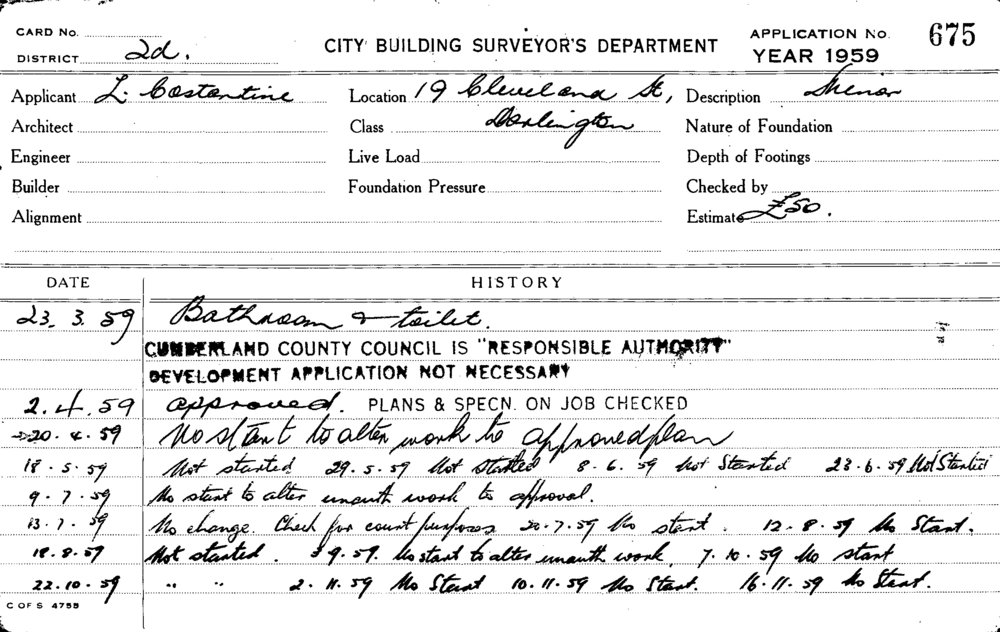 CARD No.
DISTRICT 2d.
CITY BUILDING SURVEYOR'S DEPARTMENT
APPLICATION No. 675
YEAR 1959
Applicant L. Costantine Location 19 Cleveland St, Description Minor
Architect Class Darlington Nature of Foundation
Engineer Live Load Depth of Footings
Builder Foundation Pressure Checked by
Alignment Estimate £50.
DATE HISTORY
23. 3. 59 Bathroom & toilet.
CUMBERLAND COUNTY COUNCIL IS "RESPONSIBLE AUTHORITY"
DEVELOPMENT APPLICATION NOT NECESSARY
2. 4. 59 approved. PLANS & SPECN. ON JOB CHECKED
20. 4. 59 No start to alter work to approved plan
18. 5. 59 Not started 29. 5. 59 Not started 8. 6. 59 Not Started 23. 6. 59 Not Started
9. 7. 59 No start to alter unauth work to approval.
13. 7. 59 No change. Check for court purposes 20. 7. 59 No start. 12. 8. 59 No Start.
18. 8. 59 Not started. 9. 59. No start to alter unauth work. 7. 10. 59 No start
22. 10. 59 " " 2. 11. 59 No Start 10. 11. 59 No Start. 16. 11. 59 No Start.
C OF S 4755